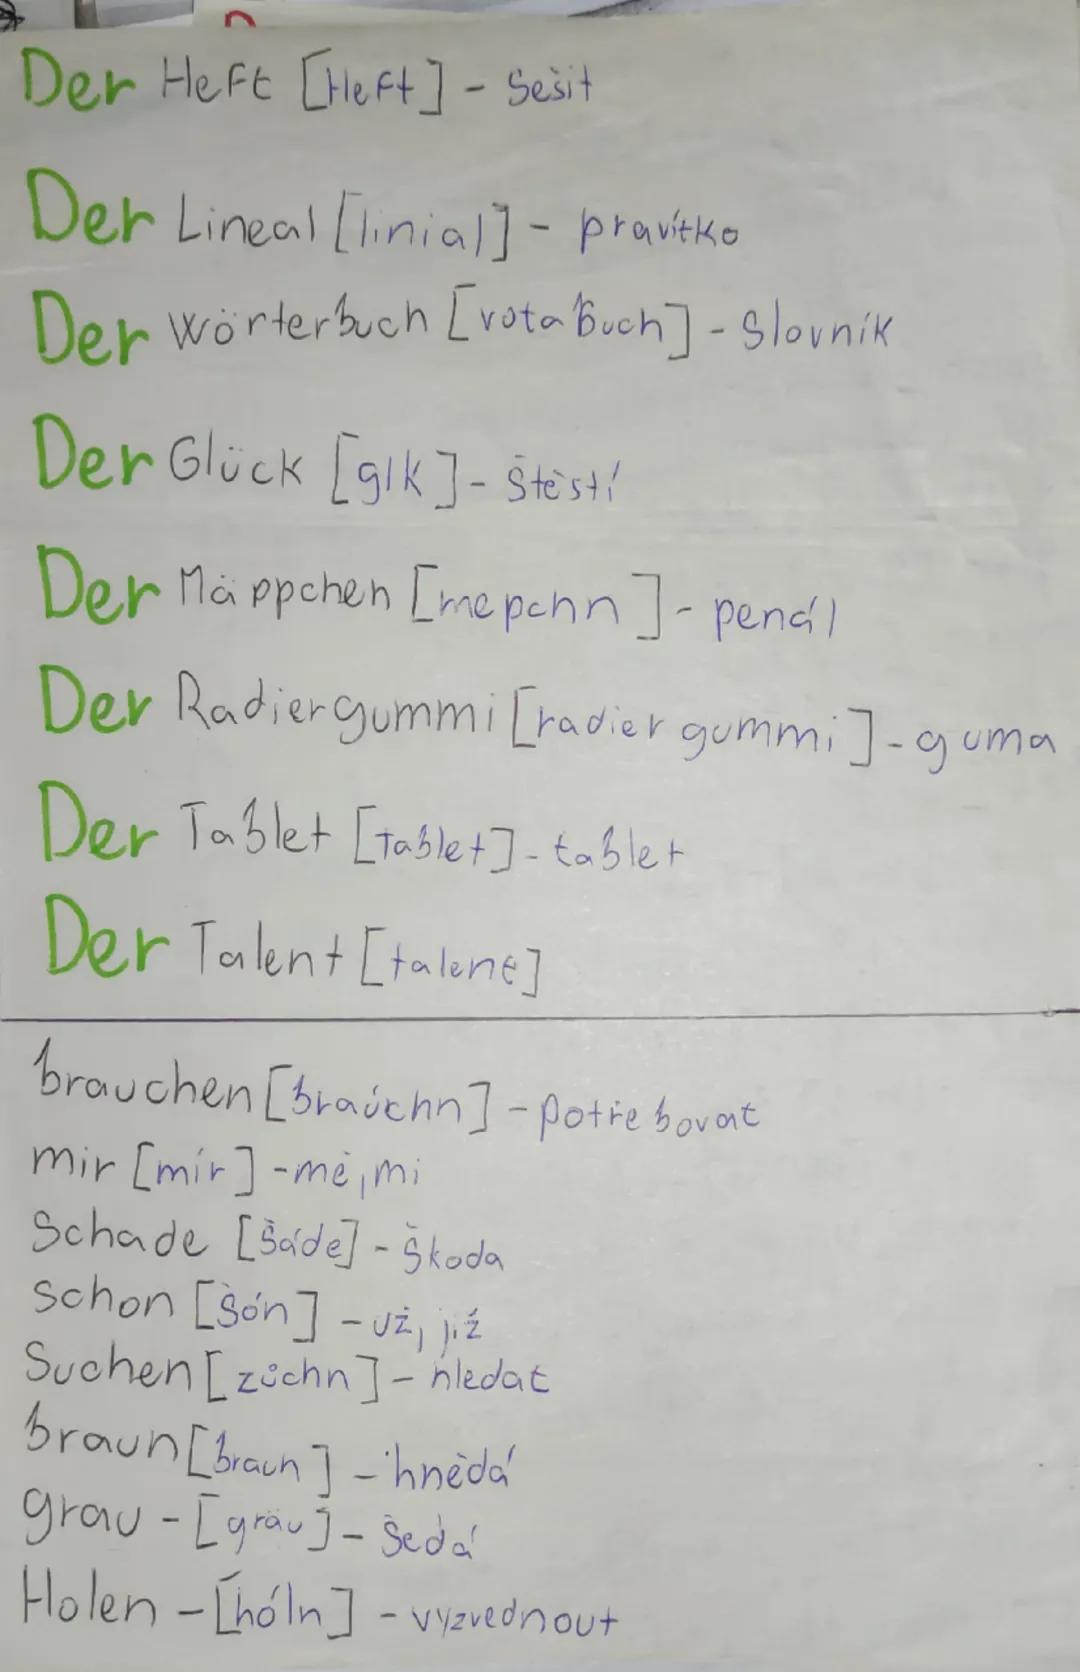 Der Heft [Heft] - Sešit
Der Lineal [linial] - pravítko
Der Wörterbuch [votabuch] - Slovník
Der Glück [glk] - štěstí
Der Mäppchen [mepchn] - penál
Der Radiergummi [radier gummi] - guma
Der Tablet [tablet] - tablet
Der Talent [talent]
brauchen [braúchn] - potřebovat
mir [mír] - mě, mi
Schade [šáde] - škoda
schon [šón] - už, již
Suchen [zůchn] - hledat
braun [braun] - hnědá
grau - [grau] - šedá
Holen - [hóln] - vyzvednout